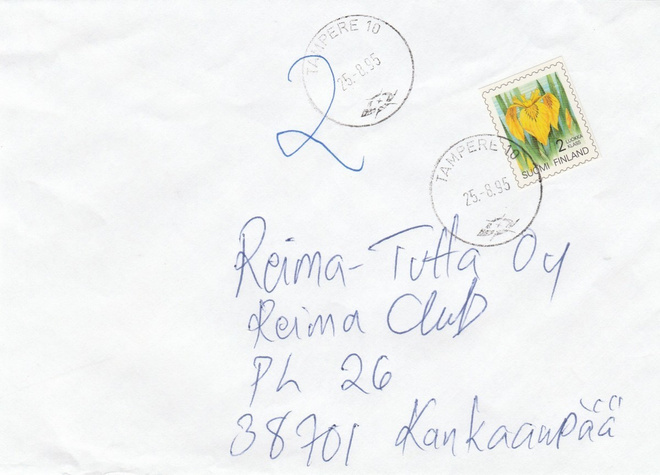 TAMPERE 10
25.-8.95
2
2 LUOKKA
KLASS
SUOMI FINLAND
TAMPERE 10
25.-8.95
Reima-Tutta Oy
Reima Club
PL 26
38701 Kankaanpää